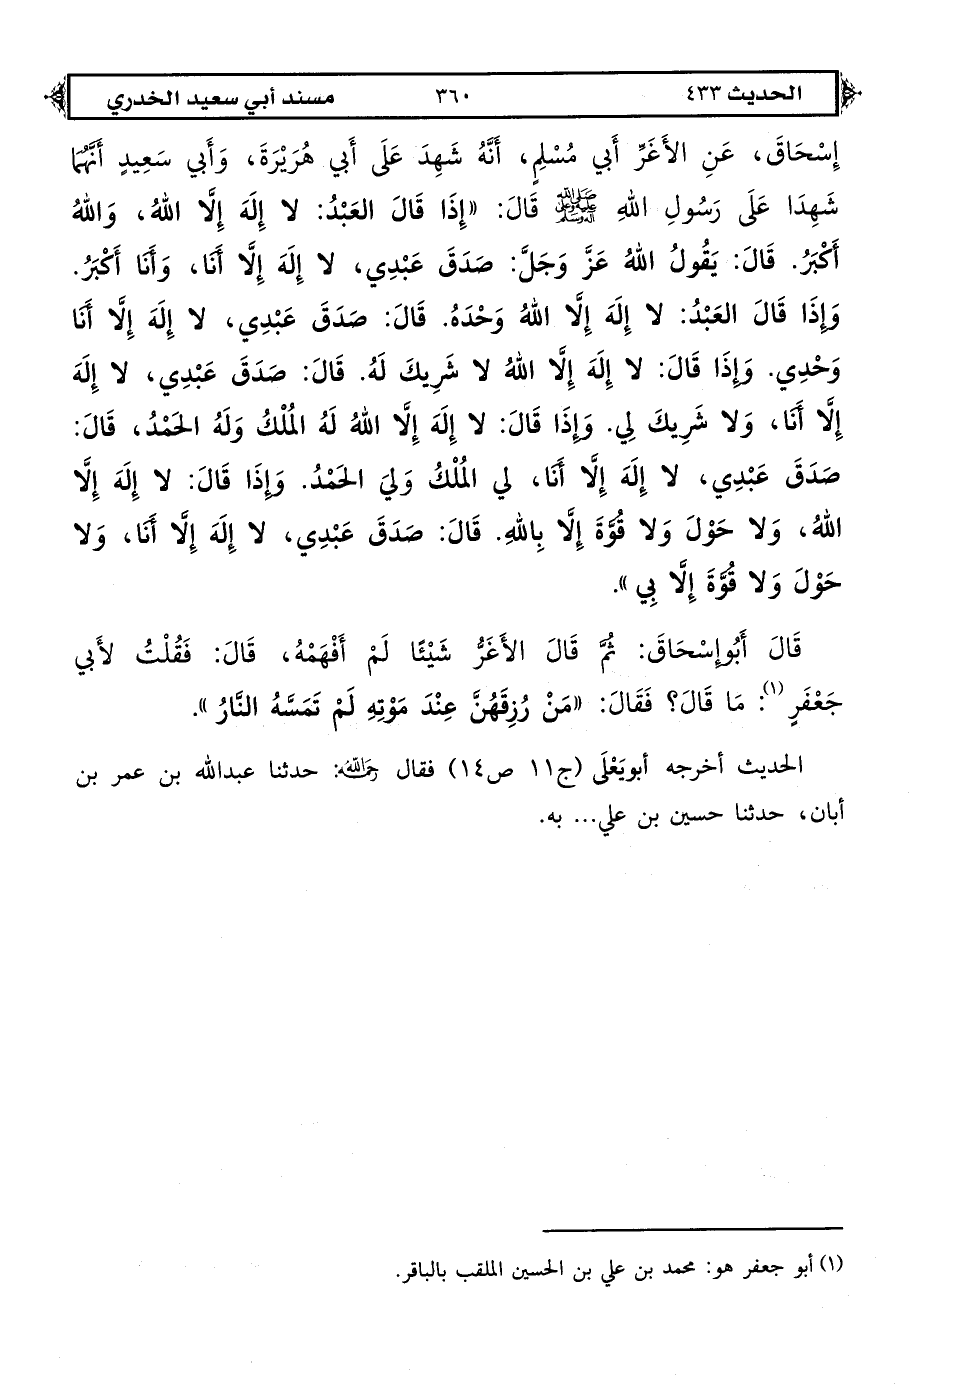 الحديث ٤٣٣ ٣٦٠ مسند أبي سعيد الخدري
إِسْحَاقَ، عَنِ الأَغَرِّ أَبي مُسْلِمٍ، أَنَّهُ شَهِدَ عَلَى أَبي هُرَيْرَةَ، وَأَبي سَعِيدٍ أَنَّهُمَا
شَهِدَا عَلَى رَسُولِ اللهِ ﷺ قَالَ: «إِذَا قَالَ العَبْدُ: لا إِلَهَ إِلَّا اللهُ، وَاللهُ
أَكْبَرُ. قَالَ: يَقُولُ اللهُ عَزَّ وَجَلَّ: صَدَقَ عَبْدِي، لا إِلَهَ إِلَّا أَنَا، وَأَنَا أَكْبَرُ.
وَإِذَا قَالَ العَبْدُ: لا إِلَهَ إِلَّا اللهُ وَحْدَهُ. قَالَ: صَدَقَ عَبْدِي، لا إِلَهَ إِلَّا أَنَا
وَحْدِي. وَإِذَا قَالَ: لا إِلَهَ إِلَّا اللهُ لا شَرِيكَ لَهُ. قَالَ: صَدَقَ عَبْدِي، لا إِلَهَ
إِلَّا أَنَا، وَلا شَرِيكَ لِي. وَإِذَا قَالَ: لا إِلَهَ إِلَّا اللهُ لَهُ المُلْكُ وَلَهُ الحَمْدُ، قَالَ:
صَدَقَ عَبْدِي، لا إِلَهَ إِلَّا أَنَا، لي المُلْكُ وَليَ الحَمْدُ. وَإِذَا قَالَ: لا إِلَهَ إِلَّا
اللهُ، وَلا حَوْلَ وَلا قُوَّةَ إِلَّا بِاللهِ. قَالَ: صَدَقَ عَبْدِي، لا إِلَهَ إِلَّا أَنَا، وَلا
حَوْلَ وَلا قُوَّةَ إِلَّا بِي».
قَالَ أَبُوإِسْحَاقَ: ثُمَّ قَالَ الأَغَرُّ شَيْئًا لَمْ أَفْهَمْهُ، قَالَ: فَقُلْتُ لأَبي
جَعْفَرٍ (١): مَا قَالَ؟ فَقَالَ: «مَنْ رُزِقَهُنَّ عِنْدَ مَوْتِهِ لَمْ تَمَسَّهُ النَّارُ».
الحديث أخرجه أبويَعْلَى (ج١١ ص١٤) فقال رحمه الله: حدثنا عبدالله بن عمر بن
أبان، حدثنا حسين بن علي... به.
(١) أبو جعفر هو: محمد بن علي بن الحسين الملقب بالباقر.